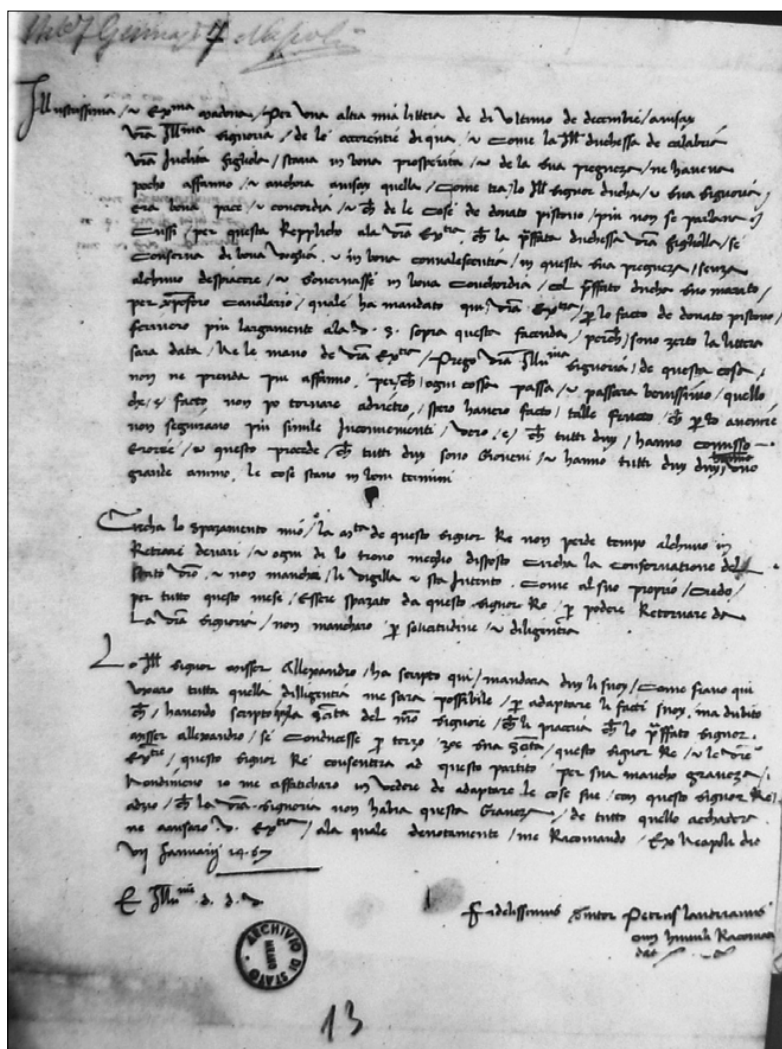 1467 Gennaio 7 Napoli
Illustrissima / et Exma madona / Per una altra mia littera de di ultimo de decembre / avisay
Vra Illma Signoria / de le occorentie di qua / et Come la Ill duchessa de calabria
Vra Inclita figliola / stava in bona prosperita / et de la sua pregneza / ne haveva
pocho affanno / et anchora avisay quella / Come tra / lo Ill signor ducha / et sua signoria /
era bona pace / et concordia / et ch de le Cose de donato pistorio / piu non se parlava /
Cussi / per questa Repplicho ala Vra Extia / ch la pffata duchessa Vra figliolla / se
Conserva di bona voglia / et in bona convalescentia / in questa sua pregneza / senza
alchuno despiacere / et Governasse in bona Conchordia / col pffato ducha suo marito /
per xpoforo Cavalario / quale ha mandato qui / Vra Extia / p lo facto de donato pistorio /
scrivero piu largamente ala V. S. sopra questa facenda / perch / sono zerto la littera
sara data / Ne le mano de Vra Extia / Prego Vra Illma Signoria / de questa cosa /
non ne prenda piu affanno / perch / ogni cossa passa / et passara benissimo / quello
che / e / facto non po tornare adrietro / spero havero facto / talle fructo / ch p lo avenire
non seguirano piu simile Inconvenienti / Vero / e / ch tutti duy / hanno comisso
errore / et questo procede / ch tutti duy sono Gioveni / et hanno tutti duy
grande animo, le cose stano in boni termini
Circha lo spazamento mio / la Mta de questo signor Re non perde tempo alchuno in
Retrovare denari / et ogni di lo trovo meglio disposto Circha la Conservatione del
stato Vro / et non mancho / li vigilla et sta Intento. Come al suo proprio / Credo /
per tutto questo mese / Essere spazato da questo signor Re / p podere Retornare da
La Vra signoria / non mancharo p solicitudine / et diligentia
Lo Ill signor misser Allexandro / ha scripto qui / mandara duy li suoy / Come sirano qui
Usaro tutta quella dilligentia me sara possibile / p adaptare li facti suoy, ma dubito
ch / havendo scripto la Sta del nro signore / ch li piaccia ch lo pffato signor
misser allexandro / se Conducesse p terzo zoe sua Sta / questo signor Re / et le Vre
Extie / questo signor Re consentira ad questo partito per sua mancho graveza /
Nondimeno io me affaticharo in vedere de adaptare le cose sue / con questo signor Re /
adzio / ch la Vra signoria non habia questa Graveza / de tutto quello acchadera
ne avisaro V. Extia / ala quale devotamente / me Racomando / Ex Neapoli die
VII Januarii 1467
E Illme d. d. V.
Fidelissimus Servitor Petrus landrianus
cum humili Racoman
dat
ARCHIVIO DI STATO
MILANO
13